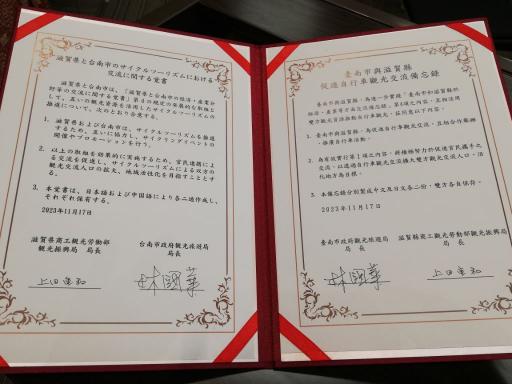 滋賀県と台南市のサイクルツーリズムにおける
交流に関する覚書
滋賀県と台南市は、「滋賀県と台南市の経済・産業分
野等の交流に関する覚書」第4項の規定の発展的な取組と
して、互いの観光資源を活用したサイクルツーリズムの
推進について、次のとおり合意する。
1. 滋賀県および台南市は、サイクルツーリズムを推進
するため、互いに協力し、サイクリングイベントの
開催やプロモーションを行う。
2. 以上の取組を効果的に実施するため、官民連携によ
る交流を促進し、サイクルツーリズムによる双方の
観光交流人口の拡大、地域活性化を目指すこととす
る。
3. 本覚書は、日本語および中国語により各二通作成し、
それぞれ保有する。
2023年11月17日
滋賀県商工観光労働部
観光振興局 局長
台南市政府観光旅遊局
局長
林國華
臺南市與滋賀縣
促進自行車觀光交流備忘錄
臺南市與滋賀縣，為進一步實踐「臺南市和滋賀縣於
經濟、產業等方面交流備忘錄」第4項之內容，並相互活用
雙方觀光資源推動自行車觀光，茲同意以下內容。
1. 臺南市與滋賀縣，為促進自行車觀光交流，並相互合作舉辦
、推廣自行車活動。
2. 為有效實行第1項之內容，將積極努力於促進官民攜手之
交流，以透過自行車交流擴大雙方觀光交流人口，活
化地方為目標。
3. 本備忘錄分別製成中文及日文各二份，雙方各自保存。
2023年11月17日
臺南市政府觀光旅遊局
局長
滋賀縣商工觀光勞動部觀光振興局
局長
林國華